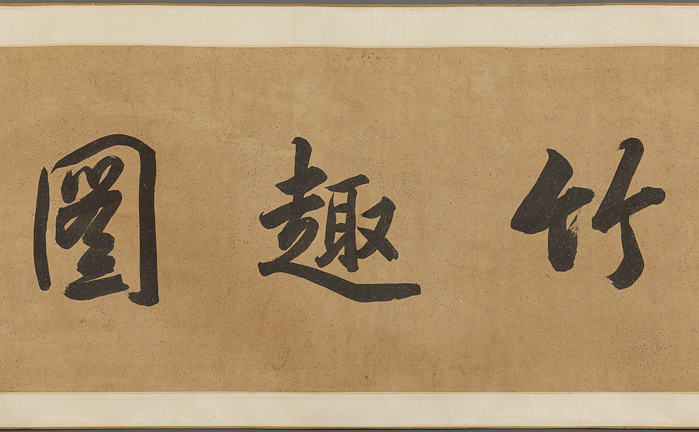 竹趣圖